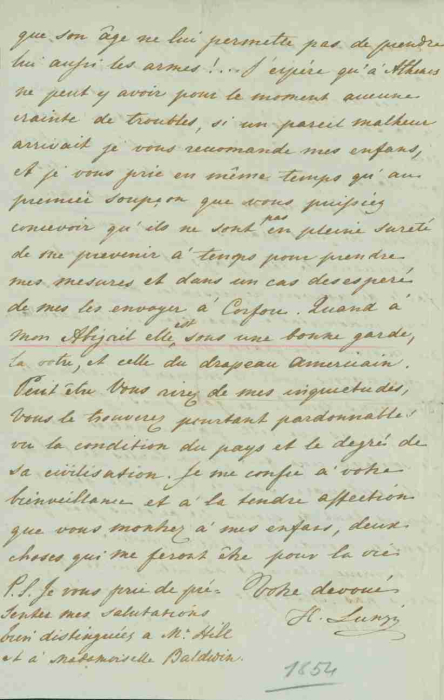 que son âge ne lui permette pas de prendre
lui aussi les armes!... J'espére qu'à Athenes
ne peut y avoir pour le moment aucune
crainte de troubles, si un pareil malheur
arrivait je vous recomande mes enfans,
et je vous prie en même temps qu'au
premier soupçon que vous puissiez
concevoir qu'ils ne sont pas en pleine sureté
de me prevenir à temps pour prendre
mes mesures et dans un cas desesperé
de mes les envoyer à Corfou. Quand à
mon Abigail elle est sous une bonne garde,
la votre, et celle du drapeau americain.
Peut être vous rirez de mes inquietudes,
vous le trouverez pourtant pardonnables
vu la condition du pays et le degré de
sa civilisation. Je me confie à votre
bienveillance et à la tendre affection
que vous montrez à mes enfans, deux
choses qui me feront être pour la vie
Votre devoué
H. Lunzi
P.S. Je vous prie de pré-
senter mes salutations
bien distinguées a Mr Hill
et à Mademoiselle Baldwin.
1854